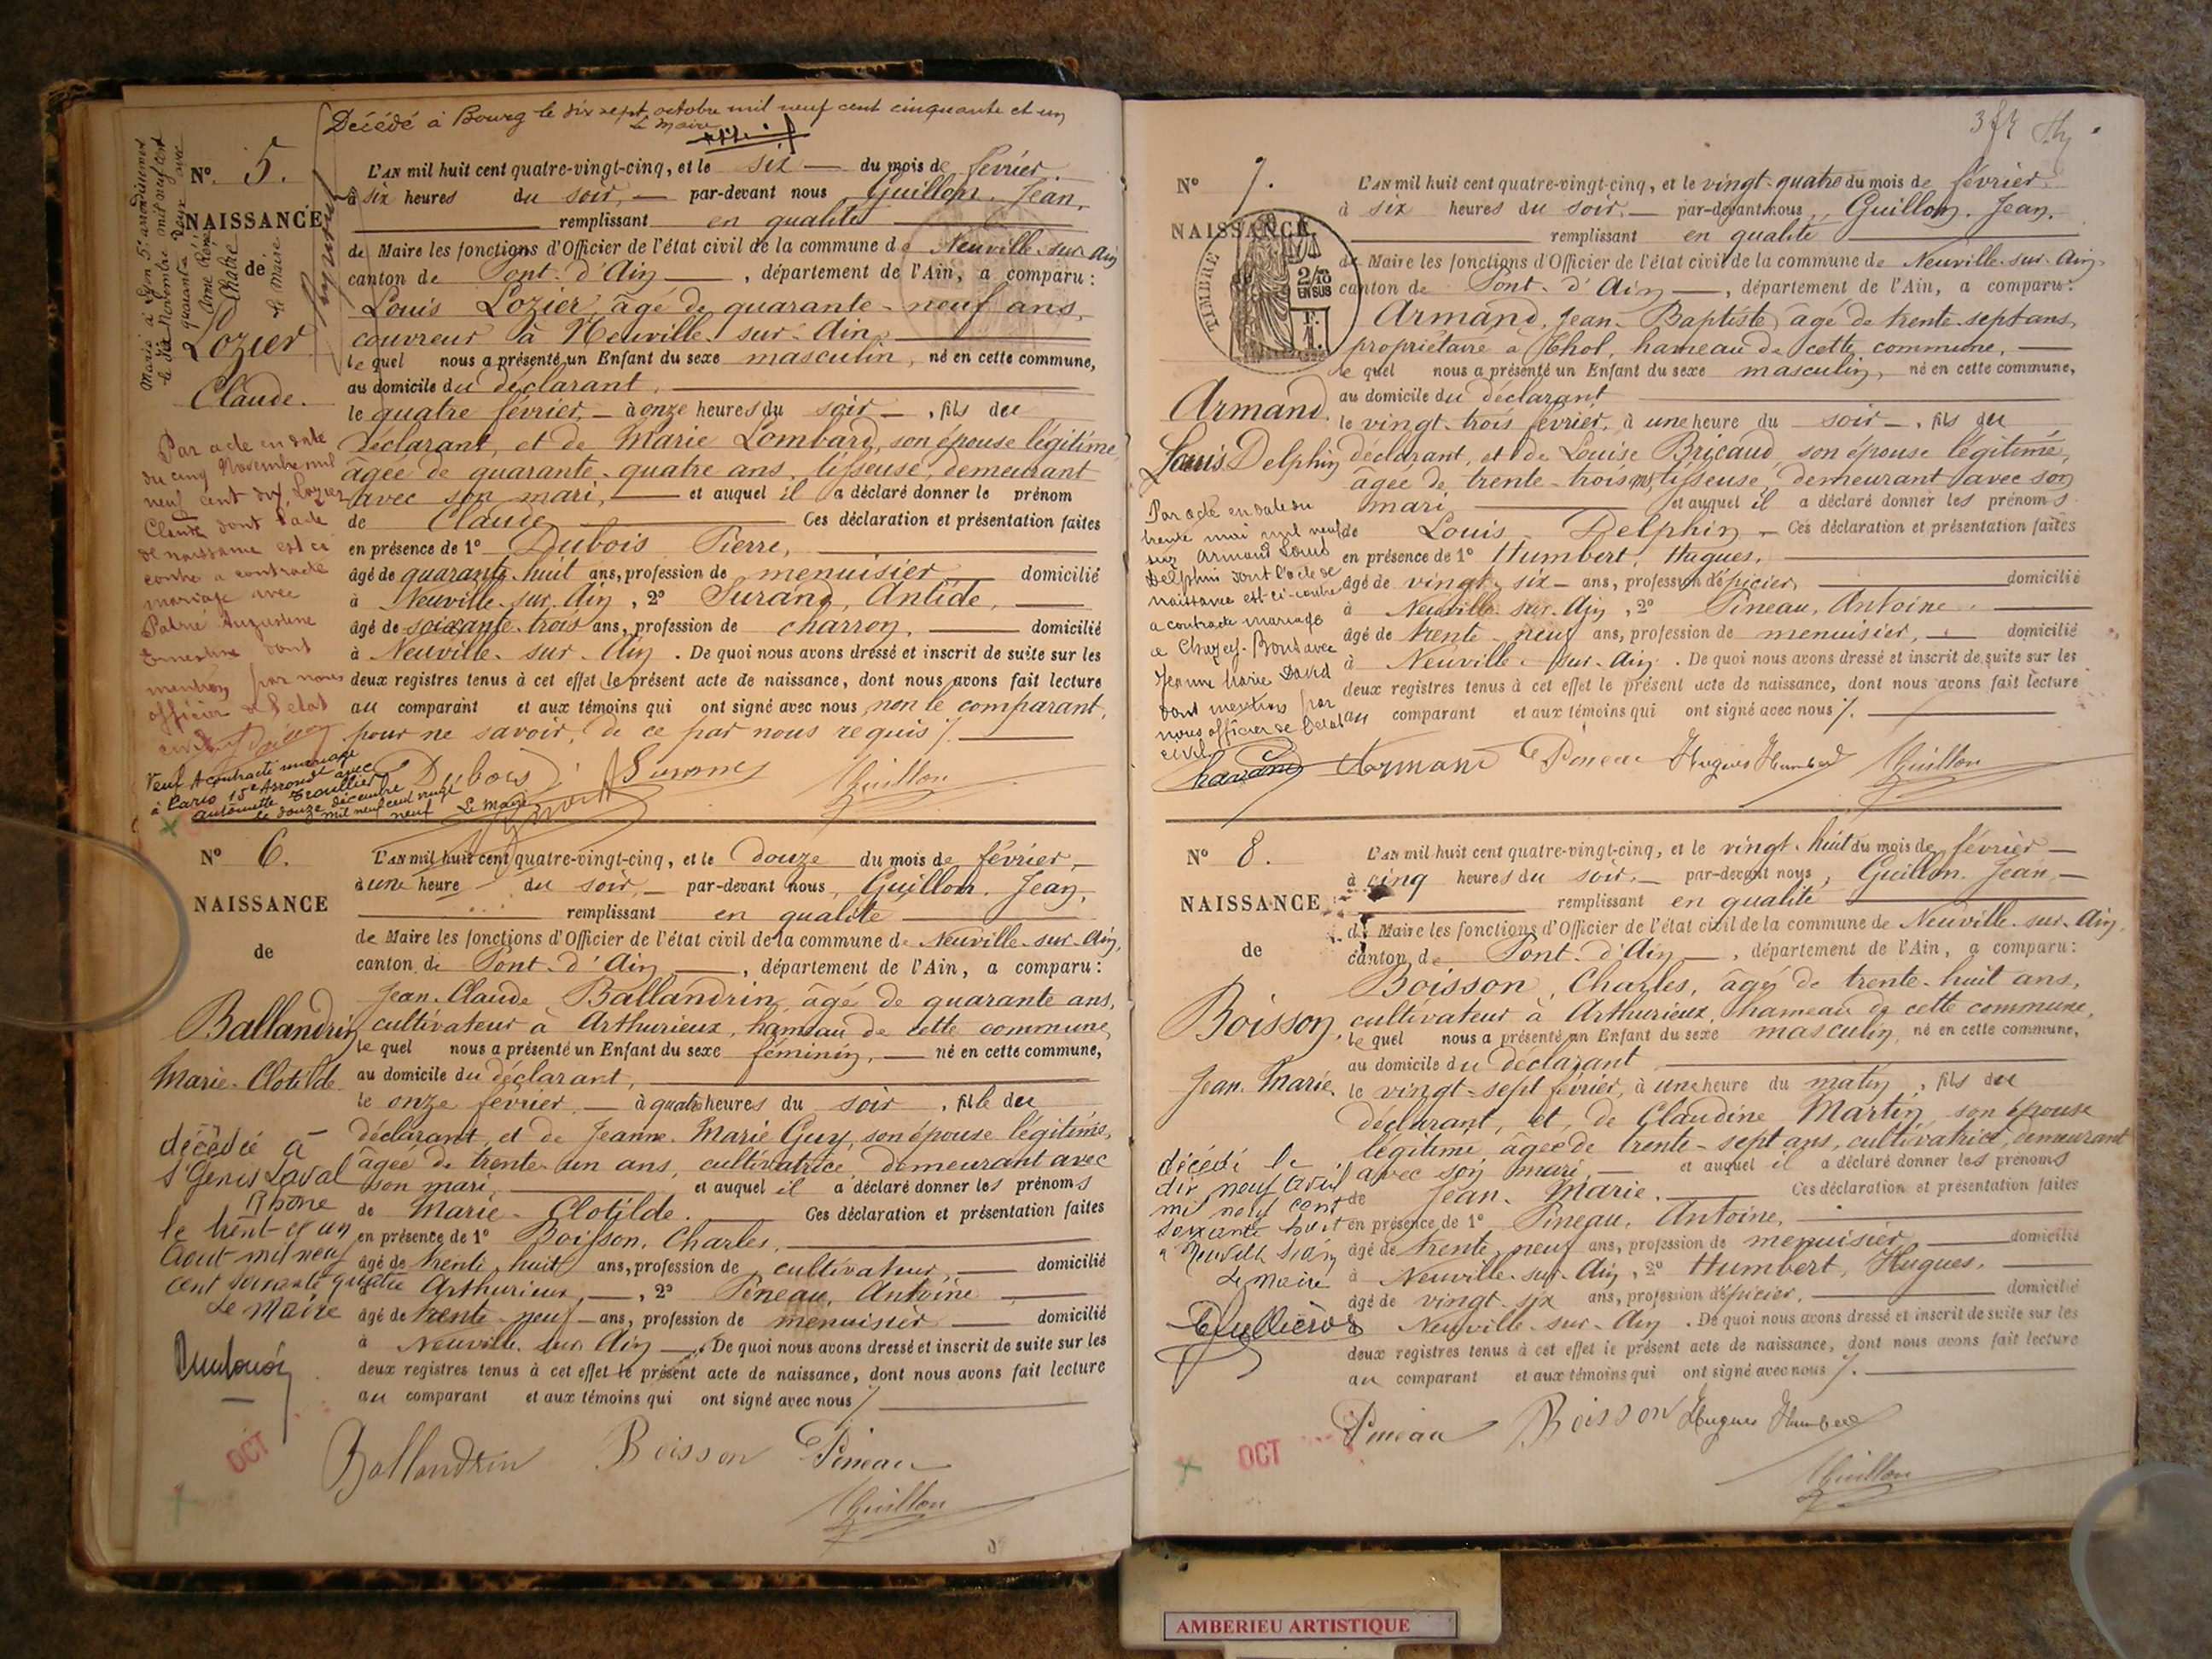 Décédé à Bourg le dix sept octobre mil neuf cent cinquante et un
Le Maire
N° 5.
NAISSANCE
de
Lozier
Claude.
Marié à Lyon 5e arrondissement
le dix Novembre mil neuf cent
quarante deux avec
Le Maire
L'AN mil huit cent quatre-vingt-cinq, et le six du mois de février.
à six heures du soir, par-devant nous Guillon, Jean,
remplissant en qualité
de Maire les fonctions d'Officier de l'état civil de la commune de Neuville-sur-Ain
canton de Pont-d'Ain, département de l'Ain, a comparu:
Louis Lozier, âgé de quarante-neuf ans,
couvreur à Neuville-sur-Ain,
lequel nous a présenté un Enfant du sexe masculin, né en cette commune,
au domicile du déclarant,
le quatre février, à onze heures du soir, fils du
déclarant, et de Marie Lombard, son épouse légitime,
âgée de quarante-quatre ans, tisseuse, demeurant
avec son mari, et auquel il a déclaré donner le prénom
de Claude Ces déclaration et présentation faites
en présence de 1° Dubois Pierre,
âgé de quarante-huit ans, profession de menuisier domicilié
à Neuville-sur-Ain, 2° Surand, Antide,
âgé de soixante-trois ans, profession de charron, domicilié
à Neuville-sur-Ain. De quoi nous avons dressé et inscrit de suite sur les
deux registres tenus à cet effet le présent acte de naissance, dont nous avons fait lecture
au comparant et aux témoins qui ont signé avec nous, non le comparant,
pour ne savoir, de ce par nous requis /.
Par acte en date
du cinq Novembre mil
neuf cent dix, Lozier
Claude dont l'acte
de naissance est ci
contre a contracté
mariage avec
Augustine
Ernestine dont
mention par nous
officier de l'état
civil
Veuf A contracté mariage
à Paris 15e Arrondt avec
Antoinette Troullier
le douze décembre
mil neuf cent vingt
neuf Le Maire
Dubois Surand Guillon
N° 6.
NAISSANCE
de
Ballandrin
Marie-Clotilde
L'AN mil huit cent quatre-vingt-cinq, et le douze du mois de février,
à une heure du soir, par-devant nous, Guillon, Jean,
remplissant en qualité
de Maire les fonctions d'Officier de l'état civil de la commune de Neuville-sur-Ain,
canton de Pont-d'Ain, département de l'Ain, a comparu:
Jean-Claude Ballandrin, âgé de quarante ans,
cultivateur à Arthurieux, hameau de cette commune,
lequel nous a présenté un Enfant du sexe féminin, né en cette commune,
au domicile du déclarant,
le onze février, à quatre heures du soir, fille du
déclarant, et de Jeanne-Marie Guy, son épouse légitime,
âgée de trente-un ans, cultivatrice, demeurant avec
son mari, et auquel il a déclaré donner les prénoms
de Marie-Clotilde. Ces déclaration et présentation faites
en présence de 1° Boisson, Charles,
âgé de trente-huit ans, profession de cultivateur, domicilié
à Arthurieux, 2° Pineau, Antoine
âgé de trente-neuf ans, profession de menuisier domicilié
à Neuville-sur-Ain. De quoi nous avons dressé et inscrit de suite sur les
deux registres tenus à cet effet le présent acte de naissance, dont nous avons fait lecture
au comparant et aux témoins qui ont signé avec nous /.
décédée à
St Genis Laval
Rhône
le trent et un
Août mil neuf
cent soixante quatre
Le Maire
OCT
Ballandrin Boisson Pineau
Guillon
N° 7.
NAISSANCE
TIMBRE
2/10
EN SUS
Armand
Louis Delphin
L'AN mil huit cent quatre-vingt-cinq, et le vingt-quatre du mois de février
à six heures du soir, par-devant nous, Guillon, Jean,
remplissant en qualité
de Maire les fonctions d'Officier de l'état civil de la commune de Neuville-sur-Ain,
canton de Pont-d'Ain, département de l'Ain, a comparu:
Armand, Jean-Baptiste, âgé de trente-sept ans,
propriétaire à Thol, hameau de cette commune,
lequel nous a présenté un Enfant du sexe masculin, né en cette commune,
au domicile du déclarant
le vingt-trois février, à une heure du soir, fils du
déclarant, et de Louise Bricaud, son épouse légitime,
âgée de trente-trois ans, tisseuse, demeurant avec son
mari, et auquel il a déclaré donner les prénoms
de Louis Delphin Ces déclaration et présentation faites
en présence de 1° Humbert, Hugues,
âgé de vingt-six ans, profession d'épicier, domicilié
à Neuville-sur-Ain, 2° Pineau, Antoine
âgé de trente-neuf ans, profession de menuisier, domicilié
à Neuville-sur-Ain. De quoi nous avons dressé et inscrit de suite sur les
deux registres tenus à cet effet le présent acte de naissance, dont nous avons fait lecture
au comparant et aux témoins qui ont signé avec nous /.
Par acte en date du
trente mai mil neuf
Armand Louis
Delphin dont l'acte de
naissance est ci-contre
a contracté mariage
à Chazey-Bons avec
Jeanne Marie David
dont mention par
nous officier de l'état
civil
Armand Pineau Hugues Humbert Guillon
N° 8.
NAISSANCE
de
Boisson,
Jean-Marie
L'AN mil huit cent quatre-vingt-cinq, et le vingt-huit du mois de février
à cinq heures du soir, par-devant nous, Guillon, Jean,
remplissant en qualité
de Maire les fonctions d'Officier de l'état civil de la commune de Neuville-sur-Ain,
canton de Pont-d'Ain, département de l'Ain, a comparu:
Boisson, Charles, âgé de trente-huit ans,
cultivateur à Arthurieux, hameau de cette commune,
lequel nous a présenté un Enfant du sexe masculin, né en cette commune,
au domicile du déclarant
le vingt-sept février, à une heure du matin, fils du
déclarant, et de Claudine Martin, son épouse
légitime, âgée de trente-sept ans, cultivatrice, demeurant
avec son mari, et auquel il a déclaré donner les prénoms
de Jean-Marie. Ces déclaration et présentation faites
en présence de 1° Pineau, Antoine,
âgé de trente-neuf ans, profession de menuisier, domicilié
à Neuville-sur-Ain, 2° Humbert, Hugues,
âgé de vingt-six ans, profession d'épicier, domicilié
à Neuville-sur-Ain. De quoi nous avons dressé et inscrit de suite sur les
deux registres tenus à cet effet le présent acte de naissance, dont nous avons fait lecture
au comparant et aux témoins qui ont signé avec nous /.
décédé le
dix neuf avril
mil neuf cent
soixante huit
à Neuville s/ Ain
Le Maire
OCT
Pineau Boisson Hugues Humbert
Guillon
AMBERIEU ARTISTIQUE